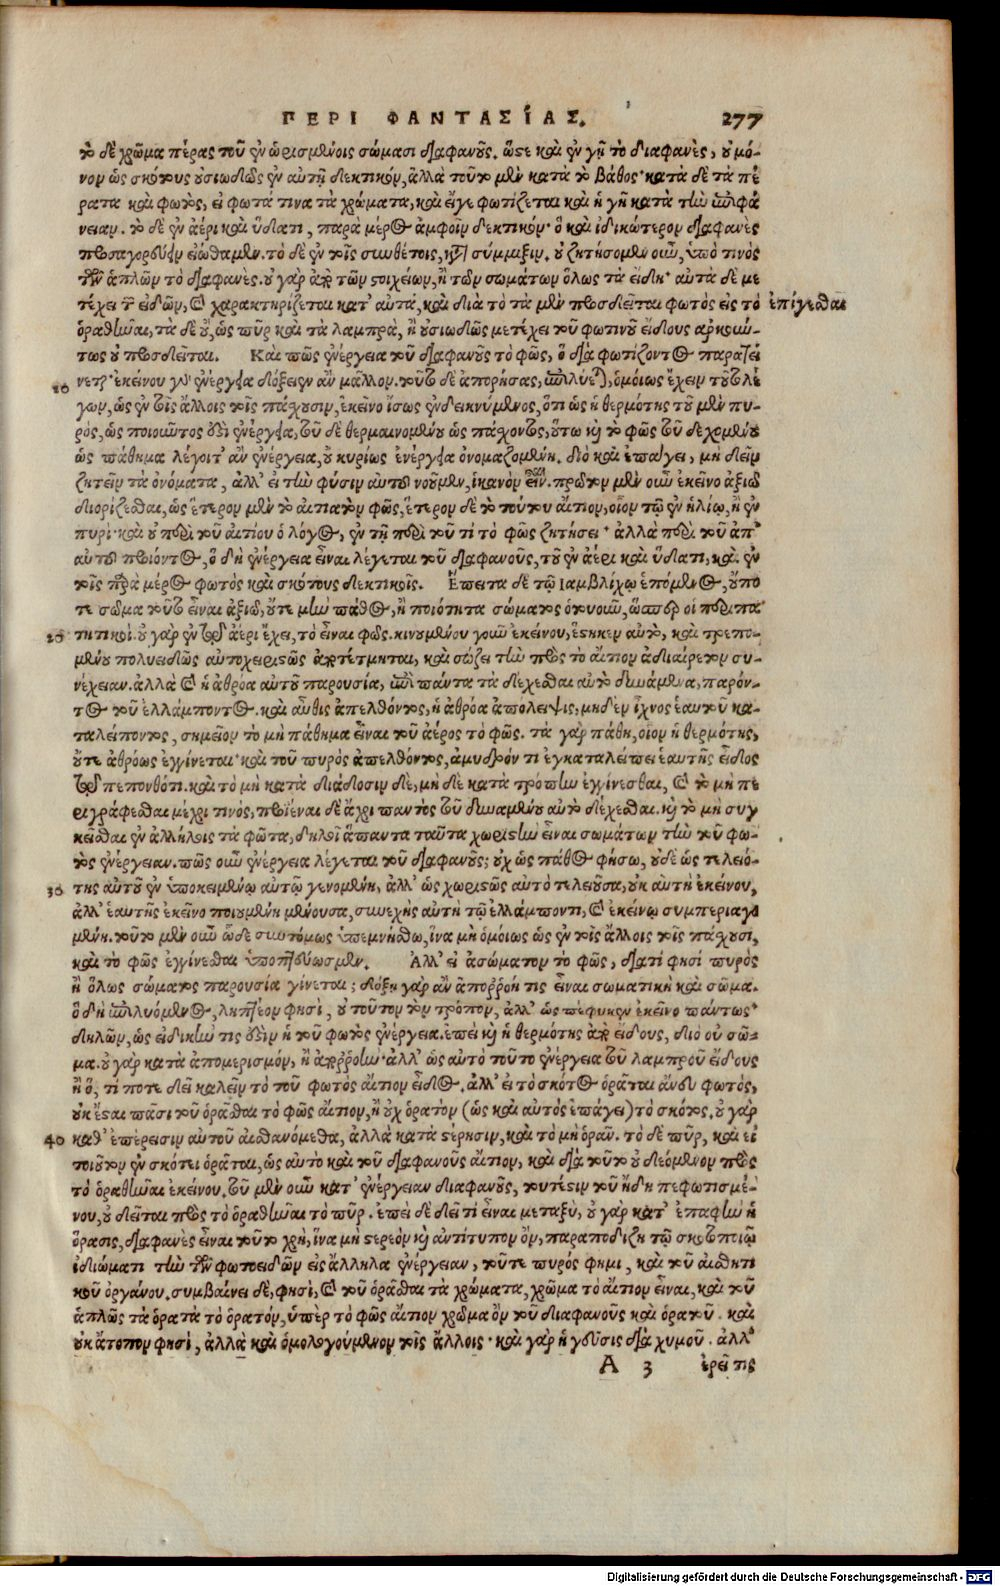 ΠΕΡΙ ΦΑΝΤΑΣΊΑΣ. 277
τὸ δὲ χρῶμα πέρας τοῦ ἐν ὡρισμένοις σώμασι διαφανοῦς. ὥστε καὶ ἐν γῇ τὸ διαφανὲς, οὐ μό-
νον ὡς σκότους οὐσιωδῶς ἐν αὐτῇ δεκτικόν, ἀλλὰ τοῦτο μὲν κατὰ τὸ βάθος· κατὰ δὲ τὰ πέ
ρατα καὶ φωτὸς, εἰ φωτά τινα τὰ χρώματα, καὶ εἴγε φωτίζεται καὶ ἡ γῆ κατὰ τὴν ἐπιφά
νειαν. τὸ δὲ ἐν ἀέρι καὶ ὕδατι, παρὰ μέρος ἀμφοῖν δεκτικόν· ὃ καὶ ἰδικώτερον διαφανὲς
προσαγορεύειν εἰώθαμεν. τὸ δὲ ἐν τοῖς συνθέτοις, κατὰ σύμμιξιν. οὐ ζητήσομεν οὖν, ὑπό τινός
τῶν ἁπλῶν τὸ διαφανές. οὐ γὰρ ἀπὸ τῶν στοιχείων, ἢ τῶν σωμάτων ὅλως τὰ εἴδη· αὐτὰ δὲ με
τέχει τῶν εἰδῶν, καὶ χαρακτηρίζεται κατ' αὐτά, καὶ διὰ τὸ τὰ μὲν προσδεῖται φωτὸς εἰς τὸ ἐπίγεσθαι
ὁραθῆναι, τὰ δὲ οὔ, ὡς πῦρ καὶ τὰ λαμπρά, ἢ οὐσιωδῶς μετέχει τοῦ φωτινοῦ εἴδους ἀρκούν-
τως οὐ προσδεῖται. Καὶ πῶς ἐνέργεια τοῦ διαφανοῦς τὸ φῶς, ὃ διὰ φωτίζοντος παραγί
10 νεται· ἐκείνου γὰρ ἐνέργεια δόξειεν ἂν μᾶλλον. τοῦτο δὲ ἀπορήσας, ἐπιλύεται, ὁμοίως ἔχειν τοῦτο λέ
γων, ὡς ἐν τοῖς ἄλλοις τοῖς πάχουσιν, ἐκεῖνο ἴσως ἐνδεικνύμενος, ὅτι ὡς ἡ θερμότης τοῦ μὲν πυ-
ρὸς, ὡς ποιοῦντος ἐστὶ ἐνέργεια, τοῦ δὲ θερμαινομένου ὡς πάχοντος, οὕτω καὶ τὸ φῶς τοῦ δεχομένου
ὡς πάθημα λέγοιτ' ἂν ἐνέργεια, οὐ κυρίως ἐνέργεια ὀνομαζομένη. διὸ καὶ ἐπάγει, μὴ δεῖν
ζητεῖν τὰ ὀνόματα, ἀλλ' εἰ τὴν φύσιν αὐτοῦ νοοῦμεν, ἱκανὸν εἶναι. πρῶτον μὲν οὖν ἐκεῖνο ἀξιῶ
διορίζεσθαι, ὡς ἕτερον μὲν τὸ αἰτιατὸν φῶς, ἕτερον δὲ τὸ τούτου αἴτιον, οἷον τῷ ἐν ἡλίῳ, ἢ ἐν
πυρί· καὶ οὐ περὶ τοῦ αἰτίου ὁ λόγος, ἐν τῇ περὶ τοῦ τί τὸ φῶς ζητήσει· ἀλλὰ περὶ τοῦ ἀπ'
αὐτοῦ προιόντος, ὃ δὴ ἐνέργεια εἶναι λέγεται τοῦ διαφανοῦς, τοῦ ἐν ἀέρι καὶ ὕδατι, καὶ ἐν
τοῖς παρὰ μέρος φωτὸς καὶ σκότους δεκτικοῖς. Ἔπειτα δὲ τῷ ἰαμβλίχῳ ἑπόμενος, οὔπο
τε σῶμα τοῦτο εἶναι ἀξιῶ, οὔτε μὴν πάθος, ἢ ποιότητα σώματος ὁτουοῦν, ὥσπερ οἱ περιπα
20 τητικοί. οὐ γὰρ ἐν τῷ ἀέρι ἔχει, τὸ εἶναι φῶς. κινουμένου γοῦν ἐκείνου, ἕστηκεν αὐτὸ, καὶ τρεπο-
μένου πολυειδῶς αὐτοχειρίστως ἀποτέτμηται, καὶ σώζει τὴν πρὸς τὸ αἴτιον ἀδιαίρετον συ-
νέχειαν. ἀλλὰ καὶ ἡ ἀθρόα αὐτοῦ παρουσία, ἐπὶ πάντα τὰ δέχεσθαι αὐτὸ δυνάμενα, παρόν-
τος τοῦ ἐλλάμποντος. καὶ αὖθις ἀπελθόντος, ἡ ἀθρόα ἀπόλειψις, μηδὲν ἴχνος ἑαυτοῦ κα-
ταλείποντος, σημεῖον τὸ μὴ πάθημα εἶναι τοῦ ἀέρος τὸ φῶς. τὰ γὰρ πάθη, οἷον ἡ θερμότης,
οὔτε ἀθρόως ἐγγίνεται· καὶ τοῦ πυρὸς ἀπελθόντος, ἀμυδρόν τι ἐγκαταλείπει ἑαυτῆς εἶδος
τῷ πεπονθότι. καὶ τὸ μὴ κατὰ διάδοσιν δὲ, μὴ δὲ κατὰ τροπὴν ἐγγίνεσθαι, καὶ τὸ μὴ πε
ριγράφεσθαι μέχρι τινὸς, προϊέναι δὲ ἄχρι παντὸς τοῦ δυναμένου αὐτὸ δέχεσθαι. καὶ τὸ μὴ συγ
κεῖσθαι ἐν ἀλλήλοις τὰ φῶτα, δηλοῖ ἅπαντα ταῦτα χωριστὴν εἶναι σωμάτων τὴν τοῦ φω-
τὸς ἐνέργειαν. πῶς οὖν ἐνέργεια λέγεται τοῦ διαφανοῦς; οὐχ ὡς πάθος φήσω, οὐδὲ ὡς τελειό-
30 της αὐτοῦ ἐν ὑποκειμένῳ αὐτῷ γενομένη, ἀλλ' ὡς χωριστῶς αὐτὸ τελειοῦσα, οὐκ αὐτὴ ἐκείνου,
ἀλλ' ἑαυτῆς ἐκεῖνο ποιουμένη μένουσα, συνεχὴς αὐτὴ τῷ ἐλλάμποντι, καὶ ἐκείνῳ συμπεριαγο
μένη. τοῦτο μὲν οὖν ὧδε συντόμως ὑπεμνήσθω, ἵνα μὴ ὁμοίως ὡς ἐν τοῖς ἄλλοις τοῖς πάχουσι,
καὶ τὸ φῶς ἐγγίνεσθαι ὑποπτεύωσμεν. Ἀλλ' εἰ ἀσώματον τὸ φῶς, διατί φησὶ πυρὸς
ἢ ὅλως σώματος παρουσία γίνεται; δόξῃ γὰρ ἂν ἀπορροή τις εἶναι σωματικὴ καὶ σῶμα.
ὃ δὴ ἐπιλυόμενος, ληπτέον φησὶ, οὐ τοῦτον τὸν τρόπον, ἀλλ' ὡς πέφυκεν ἐκεῖνο πάντως·
δηλῶν, ὡς εἰδική τις ἐστὶν ἡ τοῦ φωτὸς ἐνέργεια. ἐπεὶ καὶ ἡ θερμότης ἀπὸ εἴδους, διὸ οὐ σῶ-
μα. οὐ γὰρ κατὰ ἀπομερισμόν, ἢ ἀπορροήν· ἀλλ' ὡς αὐτὸ τοῦτο ἐνέργεια τοῦ λαμπροῦ εἴδους
ἢ ὅ, τι ποτε δεῖ καλεῖν τὸ τοῦ φωτὸς αἴτιον εἶδος. ἀλλ' εἰ τὸ σκότος ὁρᾶται ἄνευ φωτὸς,
οὐκ ἔσται πᾶσι τοῦ ὁρᾶσθαι τὸ φῶς αἴτιον, ἢ οὐχ ὁρατὸν (ὡς καὶ αὐτὸς ἐπάγει) τὸ σκότος. οὐ γὰρ
40 καθ' ἐπέρεισιν αὐτοῦ αἰσθανόμεθα, ἀλλὰ κατὰ στέρησιν, καὶ τὸ μὴ ὁρᾶν. τὸ δὲ πῦρ, καὶ εἴ
τι τοιοῦτον ἐν σκότει ὁρᾶται, ὡς αὐτὸ καὶ τοῦ διαφανοῦς αἴτιον, καὶ διὰ τοῦτο οὐ δεόμενον πρὸς
τὸ ὁραθῆναι ἐκείνου. τοῦ μὲν οὖν κατ' ἐνέργειαν διαφανοῦς, τουτέστιν τοῦ ἤδη πεφωτισμέ-
νου, οὐ δεῖται πρὸς τὸ ὁραθῆναι τὸ πῦρ. ἐπεὶ δὲ δεῖ τί εἶναι μεταξὺ, οὐ γὰρ κατ' ἐπαφὴν ἡ
ὅρασις, διαφανὲς εἶναι τοῦτο χρὴ, ἵνα μὴ στερεὸν καὶ ἀντίτυπον ὂν, παραποδίζῃ τῷ σκοτοποιῷ
ἰδιώματι τὴν τῶν φωτοειδῶν εἰς ἄλληλα ἐνέργειαν, τοῦτε πυρός φημι, καὶ τοῦ αἰσθητι
κοῦ ὀργάνου. συμβαίνει δὲ, φησὶ, καὶ τοῦ ὁρᾶσθαι τὰ χρώματα, χρῶμα τὸ αἴτιον εἶναι, καὶ τοῦ
ἁπλῶς τὰ ὁρατὰ τὸ ὁρατόν, ὑπὲρ τὸ φῶς αἴτιον χρῶμα ὂν τοῦ διαφανοῦς καὶ ὁρατοῦ. καὶ
οὐκ ἄτοπον φησὶ, ἀλλὰ καὶ ὁμολογούμενον τοῖς ἄλλοις· καὶ γὰρ ἡ γεῦσις διὰ χυμοῦ. ἀλλ'
A 3 ἐρεῖ τις
Digitalisierung gefördert durch die Deutsche Forschungsgemeinschaft - DFG